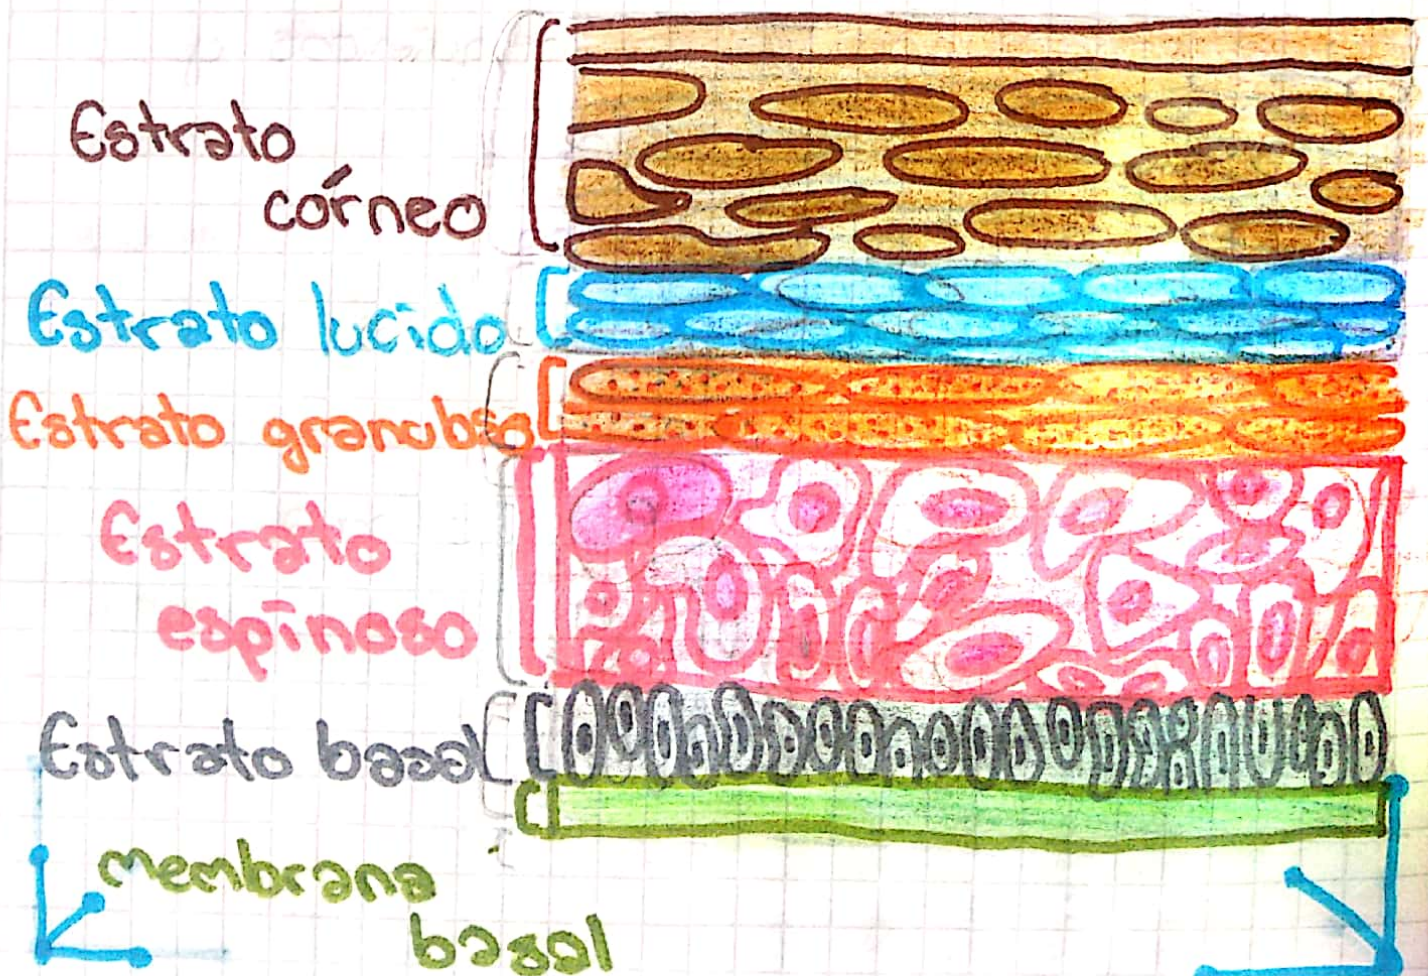 Estrato
córneo
Estrato lucido
Estrato granuloso
Estrato
espinoso
Estrato basal
membrana
basal